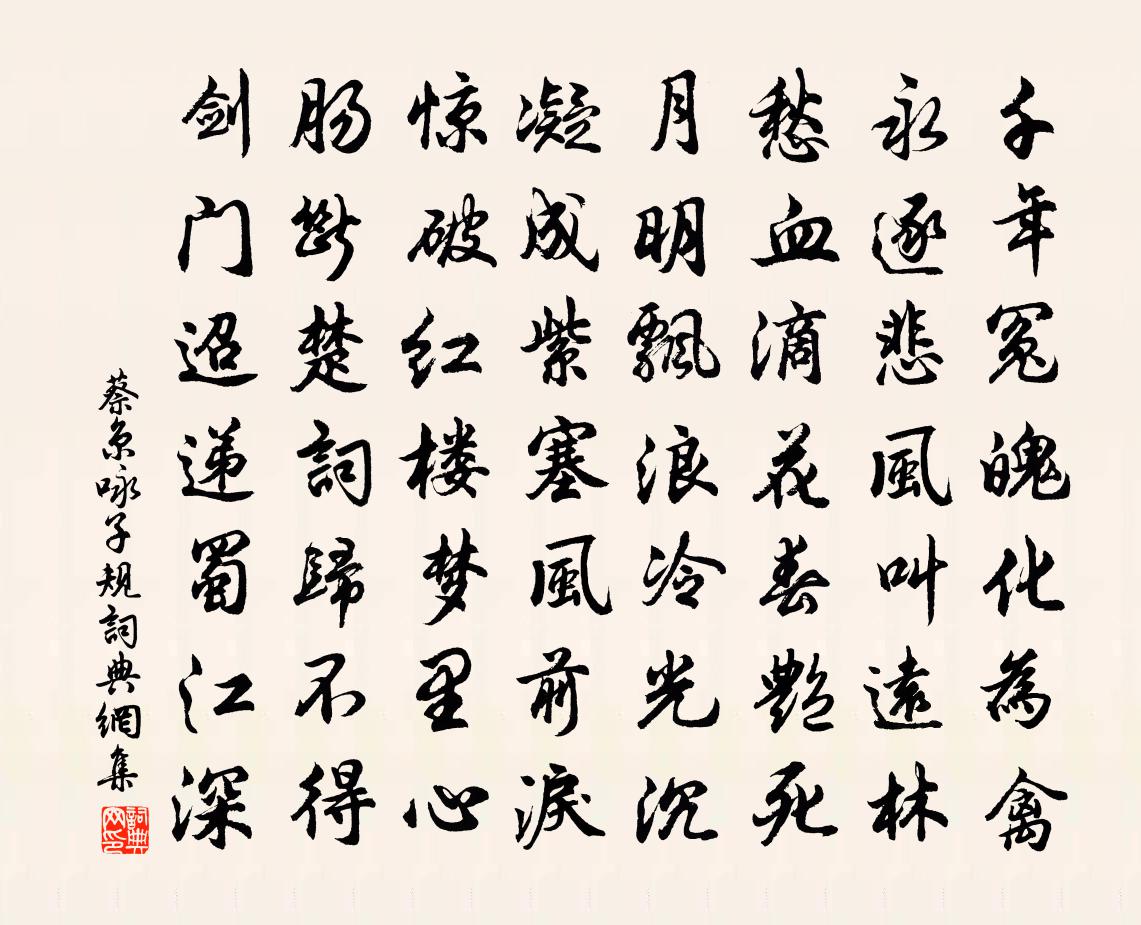 千年冤魄化為禽
永逐悲風叫遠林
愁血滴花春艷死
月明飄浪冷光沉
凝成紫塞風前淚
惊破红楼梦里心
肠斷楚詞歸不得
剑门迢递蜀江深
蔡京咏子規詞典網集
詞典网印